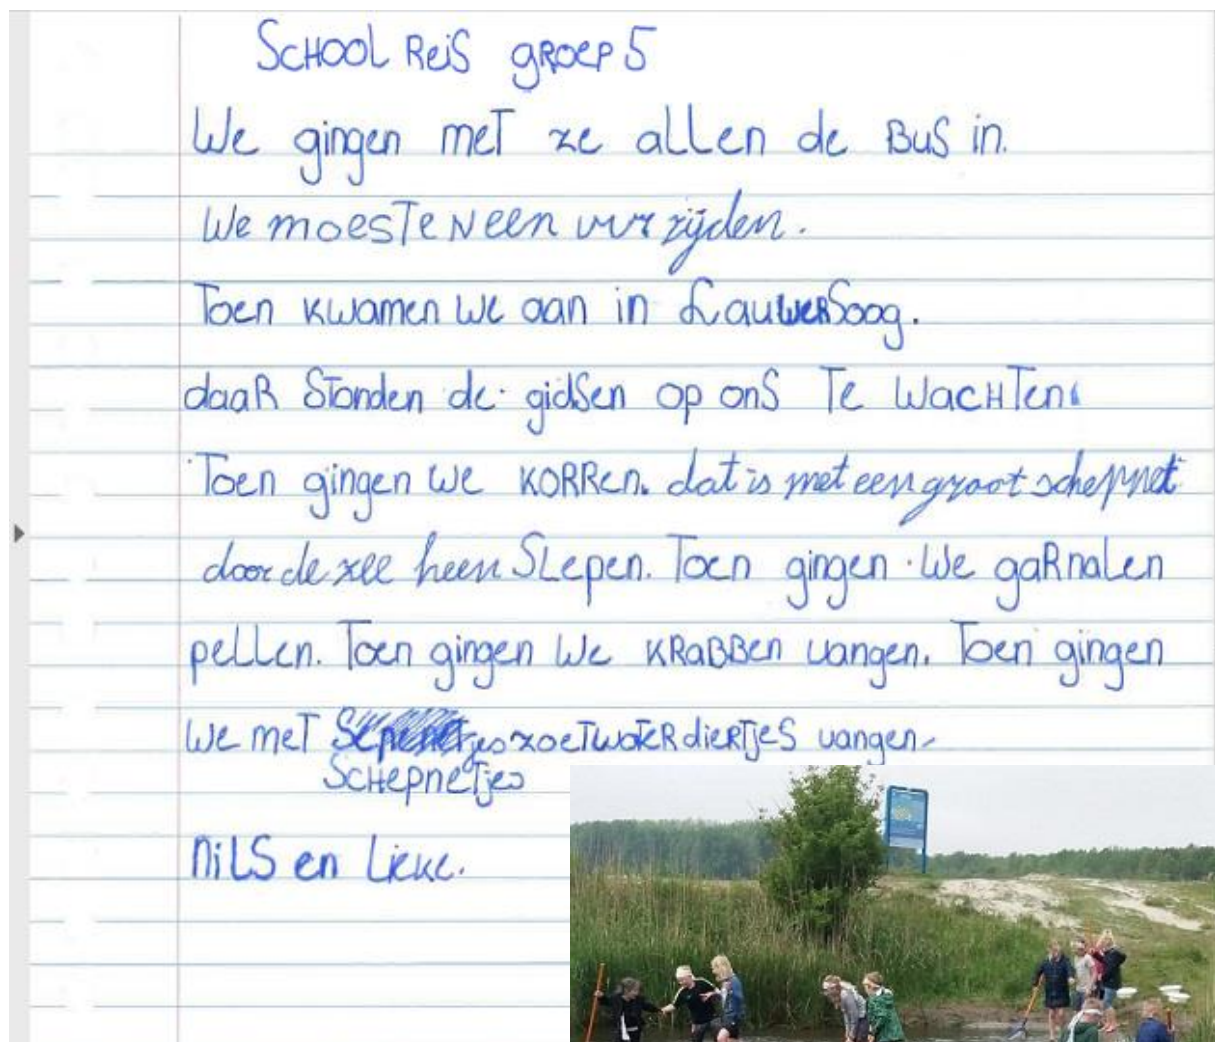 SCHOOL Reis groep 5
We gingen met ze allen de Bus in.
We moesten een uur rijden.
Toen kwamen we aan in Lauwersoog.
daar stonden de gidsen op ons te wachten.
Toen gingen we korren. dat is met een groot schepnet
door de zee heen slepen. Toen gingen we garnalen
pellen. Toen gingen we krabben vangen. Toen gingen
we met zoetwater diertjes vangen
schepnetjes
Nils en Lieke.